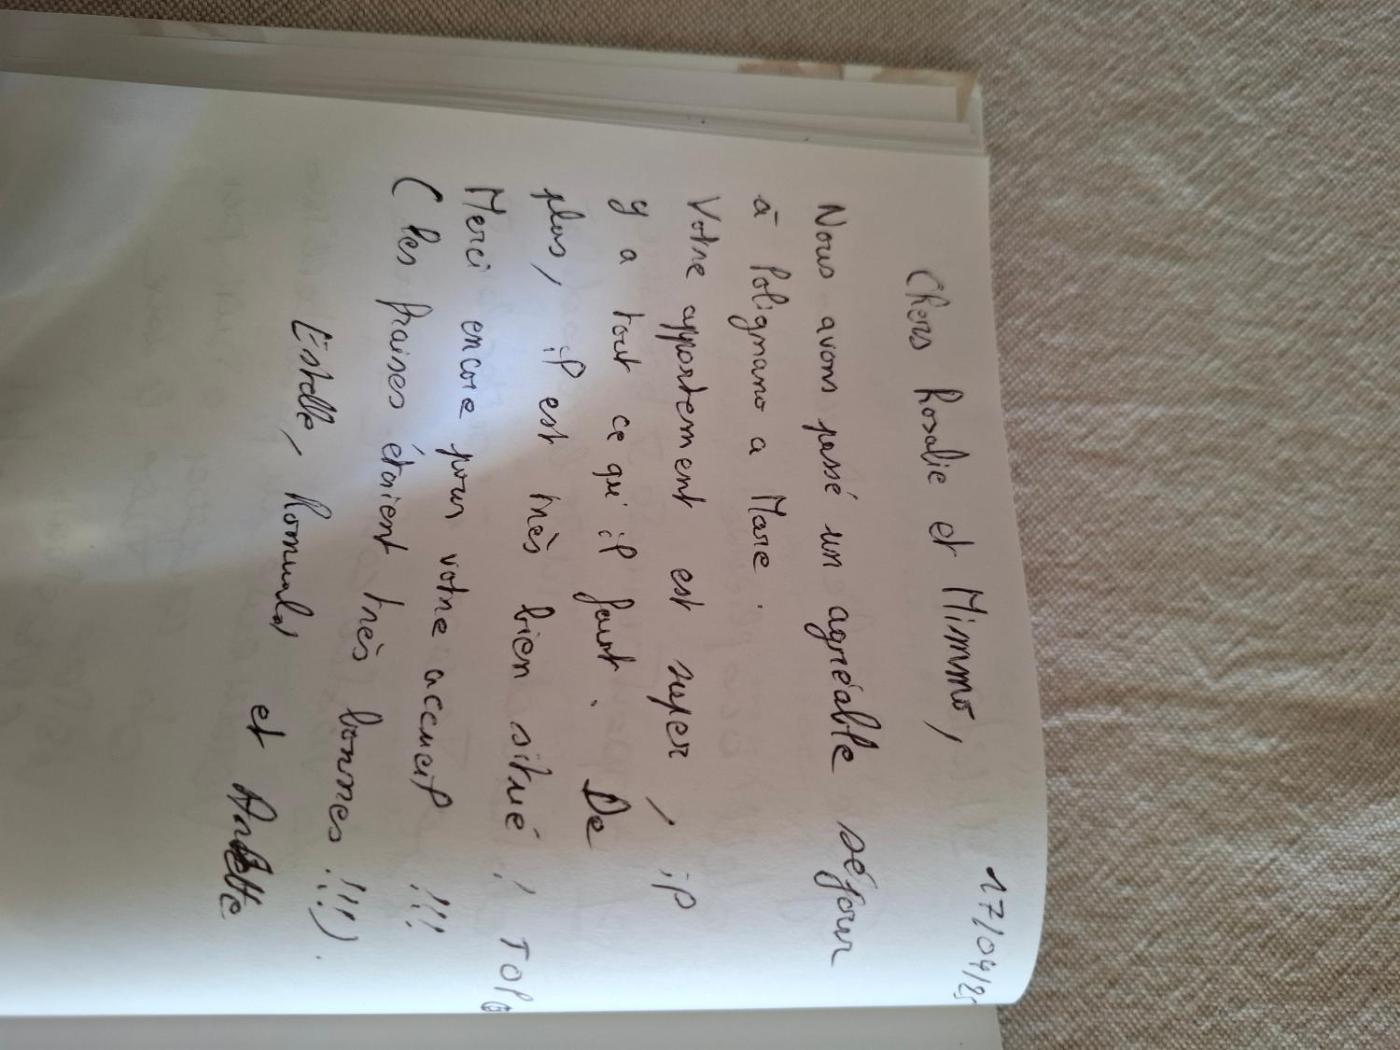 17/04/25
Chers Rosalie et Mimmo,
Nous avons passé un agréable séjour
à Polignano a Mare.
Votre appartement est super, il
y a tout ce qu'il faut. De
plus, il est très bien situé ! TOP
Merci encore pour votre accueil !!!
(les fraises étaient très bonnes !!!).
Estelle, Romuald et